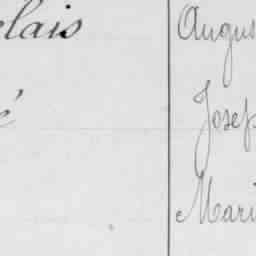 elais Augus
é Josep
Mari